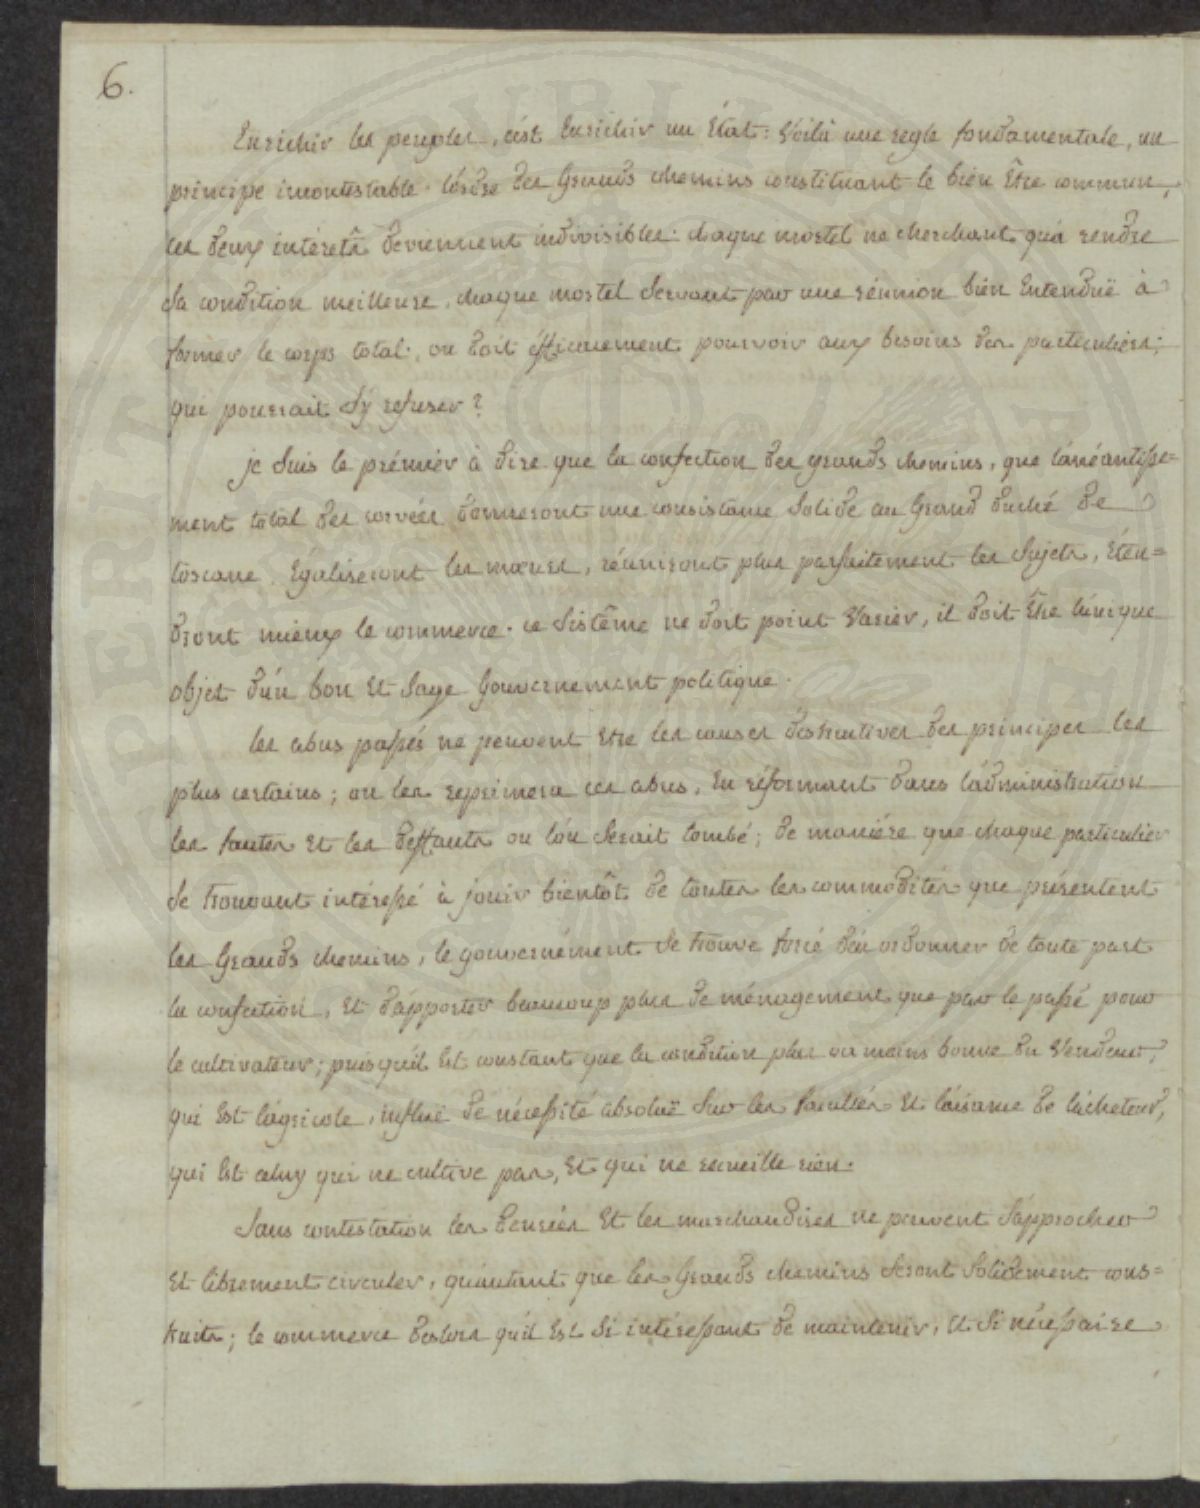 6.
Enrichir les peuples, c'est Enrichir un État: Voilà une regle fondamentale, un
principe incontestable. l'ordre des Grands chemins constituant le bien Être commun,
les deux intérets deviennent indivisibles: chaque mortel ne cherchant qu'à rendre
Sa condition meilleure, chaque mortel Servant par une réunion bien Entenduë à
former le corps total, on doit éfficacement pourvoir aux besoins des particuliers;
qui pourrait s'y refuser?
je suis le prémier à dire que la confection des grands chemins, que l'anéantisse=
ment total des corvées donneront une consistance Solide au Grand duché de
toscane, Égaliseront les mœurs, réuniront plus parfaitement les Sujets, Éten=
dront mieux le commerce. ce Sistême ne doit point Varier, il doit Être l'unique
objet d'un bon Et Sage Gouvernement politique.
les abus passés ne peuvent Etre les causes destructives des principes les
plus certains; on les reprimera ces abus, En réformant dans l'administration
les fautes Et les deffauts ou l'on Serait tombé; de maniére que chaque particulier
Se trouvant intéressé à jouir bientôt de toutes les commodités que présentent
les Grands chemins, le gouvernément Se trouve forcé d'en ordonner de toute part
la confection, Et d'apporter beaucoup plus de ménagement que par le passé pour
le cultivateur; puisqu'il Est constant que la condition plus ou moins bonne du Vendeur,
qui Est l'agricole, influë de nécessité absoluë Sur les facultés Et l'aisance de l'acheteur,
qui Est celuy qui ne cultive pas, Et qui ne recueille rien.
Sans contestation les denrées Et les marchandises ne peuvent S'approcher
Et librement circuler, qu'autant que les Grands chemins Seront Solidement cons=
truits; le commerce deslors qu'il Est Si intéressant de maintenir, Et Si nécessaire